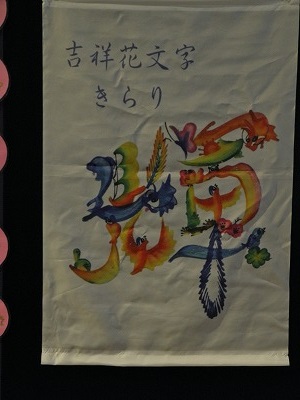 吉祥花文字
きらり
輝